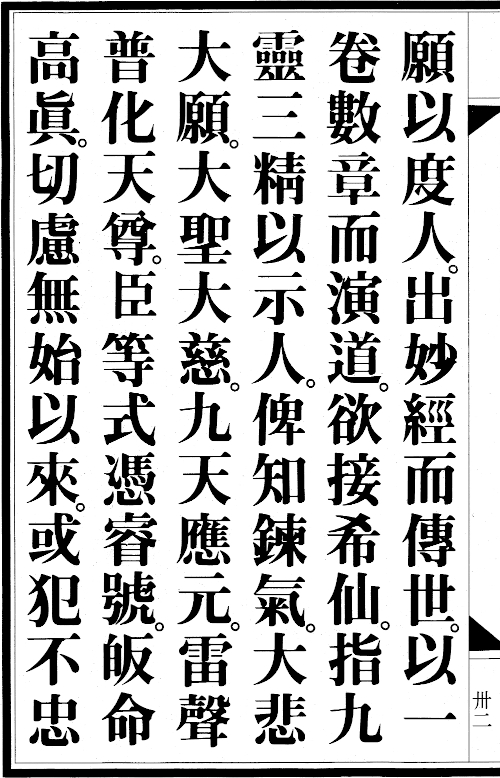 願以度人。出妙經而傳世。以一
卷數章而演道。欲接希仙。指九
靈三精以示人。俾知鍊氣。大悲
大願。大聖大慈。九天應元。雷聲
普化天尊。臣等式憑睿號。皈命
高眞。切慮無始以來。或犯不忠
卅二